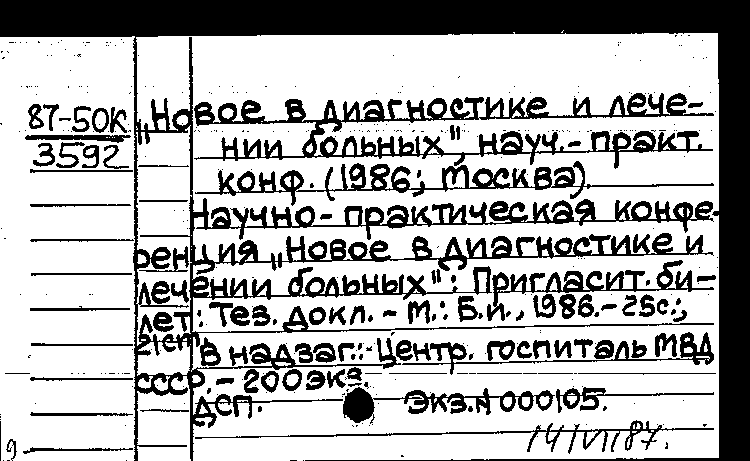 87-50К
3592
„Новое в диагностике и лече-
нии больных", науч.-практ.
конф. (1986; Москва).
Научно-практическая конфе-
ренция „Новое в диагностике и
лечении больных": Пригласит. би-
лет: Тез. докл. - М.: Б.и., 1986.- 25с.;
21см
В надзаг.: Центр. госпиталь МВД
СССР. - 200 экз.
ДСП. Экз. N 000105.
14/VII 87.
9